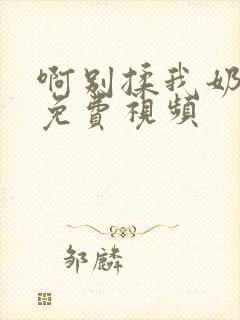 啊别揉我奶
免費視頻
邹麟